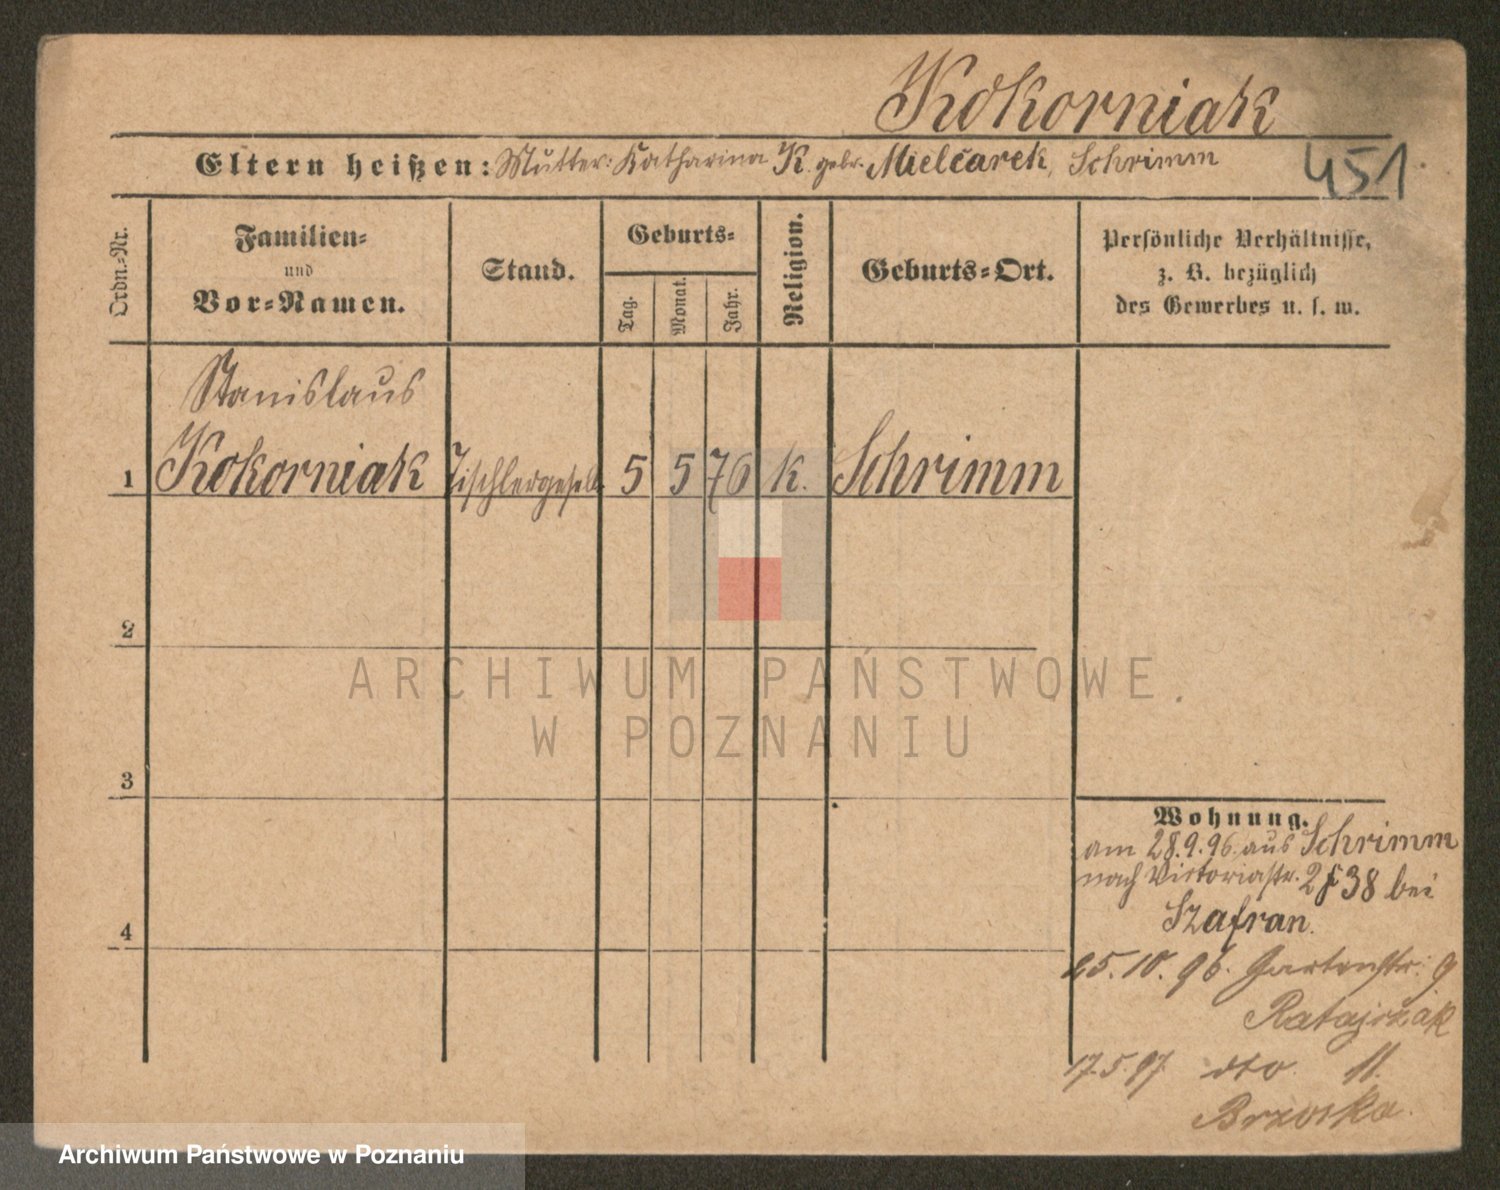 Kokorniak
Eltern heißen: Mutter: Katharina K. gebr. Mielcarek, Schrimm
451.
Ordn.-Nr.
Familien-
und
Vor-Namen.
Stand.
Geburts-
Tag.
Monat.
Jahr.
Religion.
Geburts-Ort.
Persönliche Verhältnisse,
z. B. bezüglich
des Gewerbes u. s. w.
Stanislaus
1 Kokorniak Tischlergesell. 5 5 76 k. Schrimm
2
3
4
Wohnung.
am 28.9.96. aus Schrimm
nach Victoriastr. 2 38 bei
Szafran.
25.10.96. Gartenstr. 9
Ratajczak
17.5.97 dto. 11.
Brzoska.
ARCHIWUM PAŃSTWOWE
W POZNANIU
Archiwum Państwowe w Poznaniu